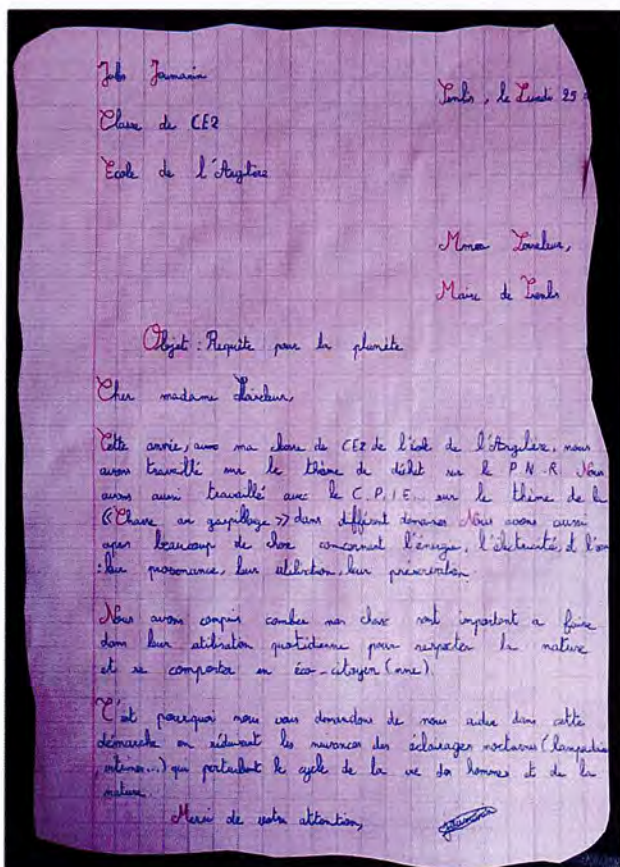 Classe de CE2
le Lundi 25
Ecole de l'Argilère
Maire de
Objet : Requête pour la planète
Cher madame
Cette année, avec ma classe de CE2 de l'école de l'Argilère, nous
avons travaillé sur le thème du déhet sur le P.N.R. Nous
avons aussi travaillé avec le C.P.I.E. sur le thème de la
« Chasse au gaspillage » dans différent domaines Nous avons aussi
beaucoup de chose concernant l'énergie, l'électricité, et l'eau
: leur provenance, leur utilisation, leur préservation.
Nous avons compris combien choses sont important a faire
dans leur utilisation quotidienne pour respecter la nature
et se comporter en éco-citoyen (nne).
C'est pourquoi nous vous demandons de nous aider dans cette
démarche en réduisant les nuisances des éclairages nocturnes (
...) qui perturbent le cycle de la vie des hommes et de la
nature.
Merci de votre attention,